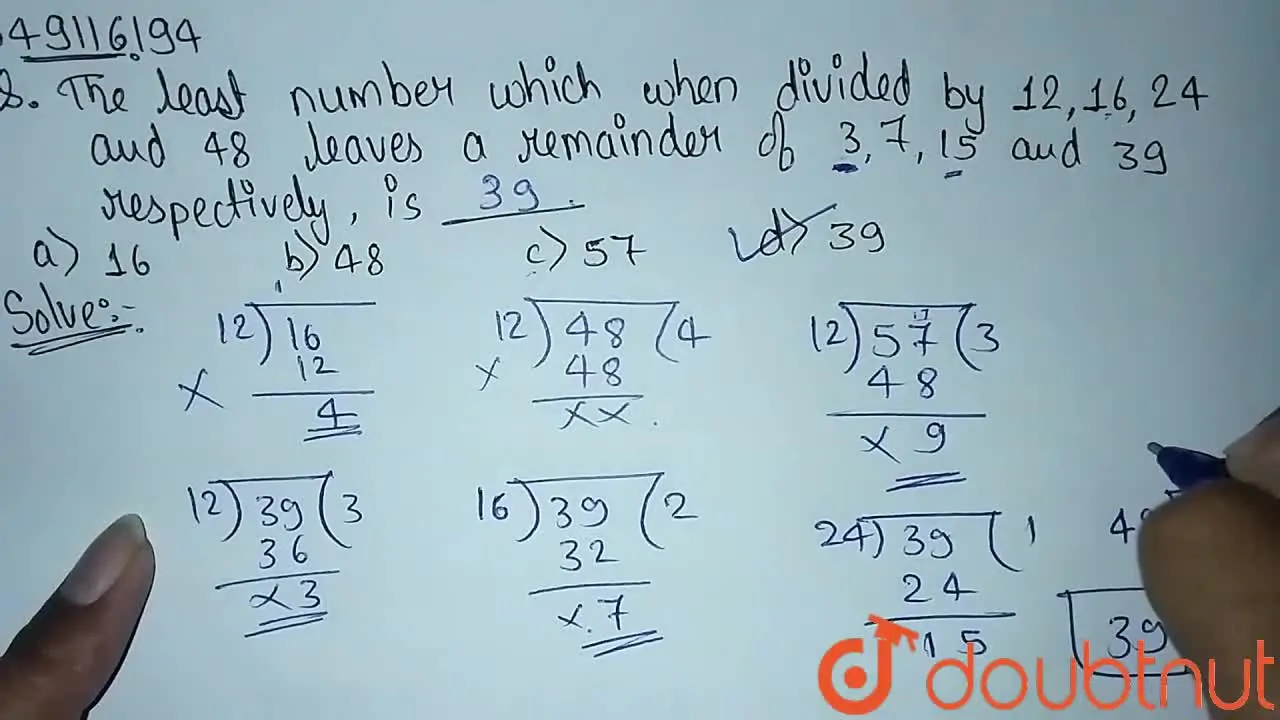 49116194
Q. The least number which when divided by 12, 16, 24
and 48 leaves a remainder of 3, 7, 15 and 39
respectively, is 39.
a) 16 b) 48 c) 57 d) 39
Solve:-
1
12) 16 12) 48 (4 12) 57 (3
12 48 48
x 4 x xx. x 9
12) 39 (3 16) 39 (2 24) 39 (1
36 32 24
x3 x.7 15
39
doubtnut